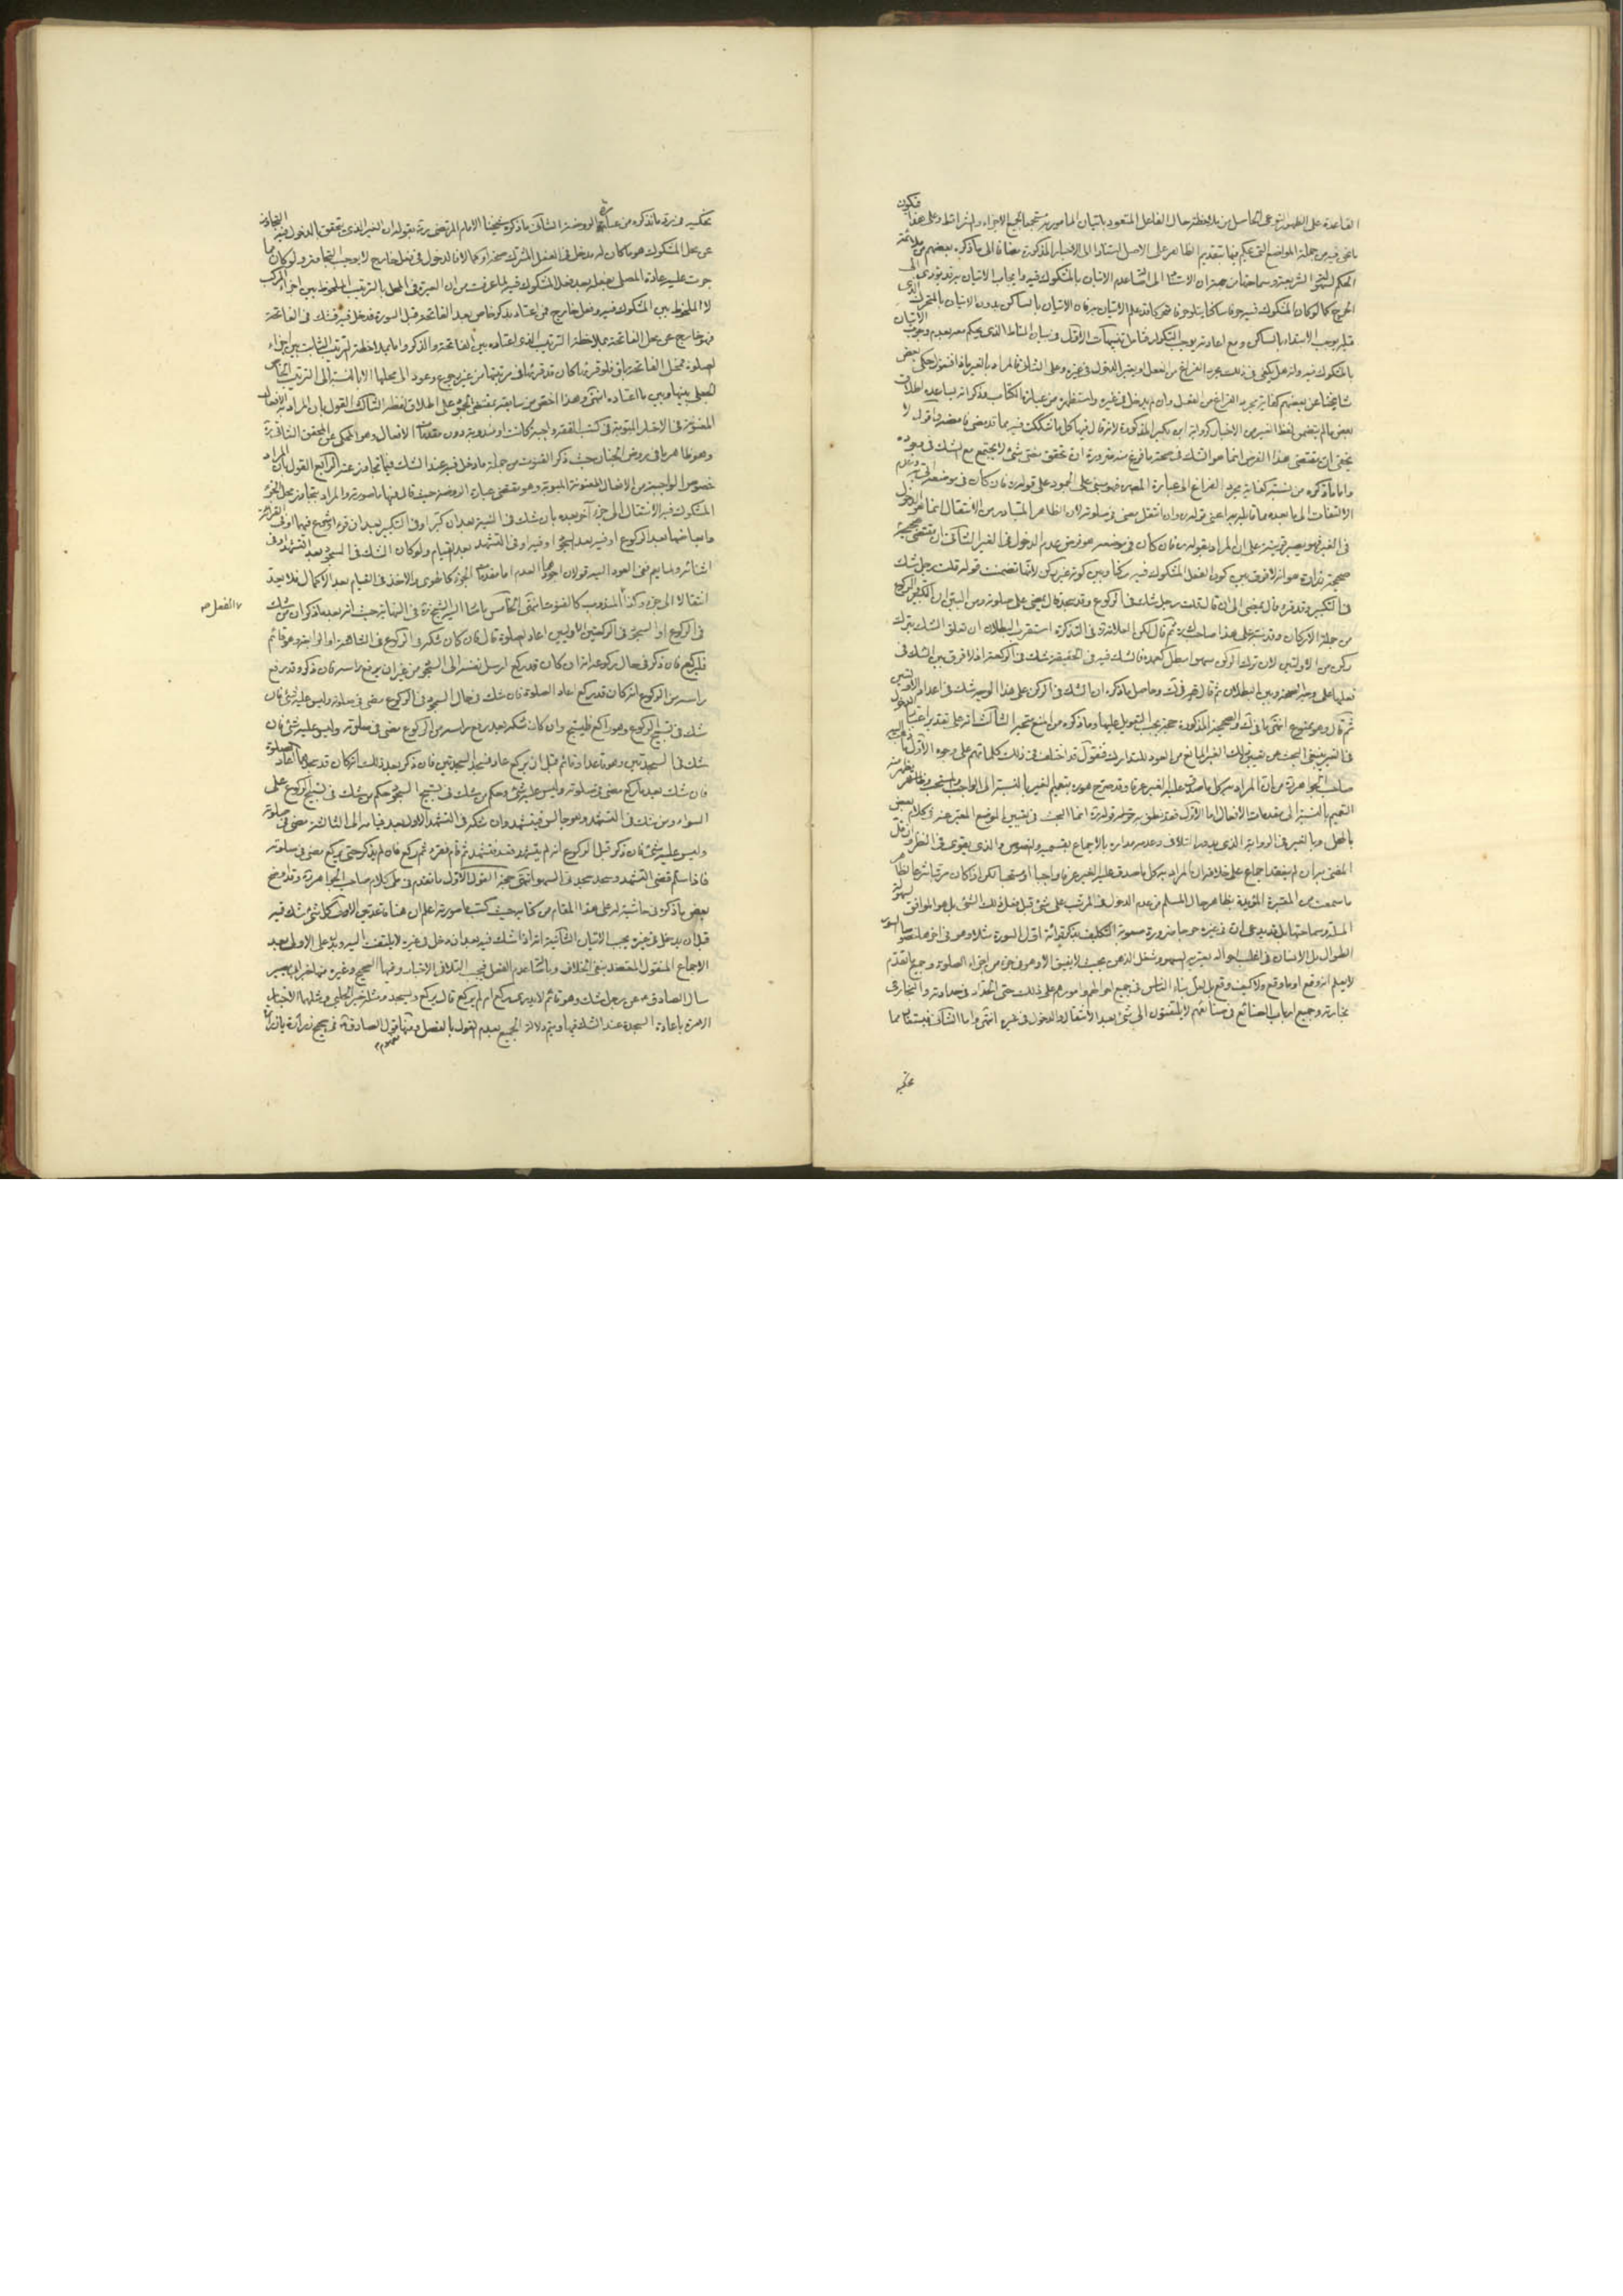 القاعدة على الظهور النوعى الحاصل من ملاحظة حال الفاعل المتعود باتيان المامور به مستجمعا لجميع الاجزاء والشرائط وعلى هذا فيكون
ما نحن فيه من جملة المواضع التى يحكم فيها بتقديم الظاهر على الاصل استنادا الى الاخبار المذكورة مضافا الى ما ذكره بعضهم من ملائمة
الحكم لسهولة الشريعة وسماحتها من جهة ان الاستناد الى اصالة عدم الاتيان بالمشكوك فيه وايجاب الاتيان به قد يؤدى الى
الحرج كما لو كان المشكوك فيه حرفا ساكنا يتلو حرفا متحركا قد علم الاتيان به فان الاتيان بالساكن بدون الاتيان بالمتحرك الذى
قبله يوجب الابتداء بالساكن ومع اعادته يوجب التكرار فتامل تنبيهات الاول فى بيان المناط الذى يحكم معه بعدم وجوب الاتيان
بالمشكوك فيه وانه هل يكفى فى ذلك مجرد الفراغ من الفعل او يعتبر الدخول فى غيره وعلى الثانى فالمراد بالغير ماذا فنقول حكى بعض
مشايخنا عن بعضهم كفاية مجرد الفراغ من الفعل وان لم يدخل فى غيره واستظهره من عبارة الكتاب وذكر انه يساعده اطلاق
بعض ما لم يتضمن لفظ الغير من الاخبار كرواية ابن بكير المذكورة لانه قال فيها كل ما شككت فيه مما قد مضى فامضه واقول لا
يخفى ان مقتضى هذا الفرض انما هو الشك فى صحة ما فرغ منه ضرورة ان تحقق مضى شئ لا يجتمع مع الشك فى وجوده
واما ما ذكره من نسبة كفاية مجرد الفراغ الى عبارة المصنف فهو مبنى على الجمود على قوله فان كان فى موضعه اتى به وعدم
الالتفات الى ما بعده مما قابله به اعنى قوله وان انتقل مضى فى صلوته لان الظاهر المتبادر من الانتقال انما هو الدخول
فى الغير فهو يصير قرينة على ان المراد بقوله فان كان فى موضعه هو فرض عدم الدخول فى الغير الثانى ان مقتضى صحيحة
صحيحة زرارة هو انه لا فرق بين كون الفعل المشكوك فيه ركنا وبين كونه غير ركن لانها تضمنت قوله قلت رجل شك
فى التكبير وقد قرء قال يمضى الى ان قال قلت رجل شك فى الركوع وقد سجد قال يمضى على صلوته ومن البين ان التكبير والركوع
من جملة الاركان وقد نبه على هذا صاحب ك ثم قال لكن العلامة فى التذكرة استقرب البطلان ان تعلق الشك بترك
ركن من الاولتين لان ترك الركن سهوا مبطل كعمده فالشك فيه فى الحقيقة شك فى الركعة اذ لا فرق بين الشك فى
فعلها على وجه الصحة وبين البطلان ثم قال وحاصل ما ذكره ان الشك فى الركن على هذا الوجه شك فى اعداد الاولتين
ثم قال وهو ممنوع انتهى ما فى ك والصحيحة المذكورة حجة يجب التعويل عليها وما ذكره من المنع متجه الثالث انه على تقدير اعتبار الدخول
فى الغير ينبغى البحث عن تعيين ذلك الغير المانع من العود للتدارك فنقول قد اختلف فى ذلك كلماتهم على وجوه الاول ما ذهب اليه
صاحب الجواهر من ان المراد به كل ما صدق عليه الغير عرفا وقد صرح هو بتعميم الغير بالنسبة الى الواجب والمستحب
التعميم بالنسبة الى مقدمات الافعال اما الاول
بالمحل وبالغير فى الرواية الذى يدور التلافى وعدمه مداره بالاجماع بقسميه والنصوص والذى يقوى فى النظر
المضى به ان لم ينعقد اجماع على خلافه ان المراد به كل ما صدق عليه الغير عرفا واجبا او مستحبا لكن اذا كان مرتبا شرعا
ما سمعت من المعتبرة المؤيدة بظاهر حال المسلم من عدم الدخول فى المرتب على شئ قبل فعل ذلك الشئ بل هو الموافق لسهولة
الملة وسماحتها بل
الطوال بل الانسان فى اغلب احواله يعتريه السهو وشغل الذهن بحيث لا يفيق الا وهو فى جزء من اجزاء الصلوة وجميع ما تقدم
لا يعلم انه وقع او ما وقع ولا كيف وقع بل لعل بناء الناس فى جميع احوالهم وامورهم على ذلك حتى الحداد فى حدادته والنجار فى
نجارته وجميع ارباب الصنائع فى صنائعهم لا يلتفتون الى شئ بعد الانتقال والدخول فى غيره انتهى واما الثانى فيستفاد مما
نحكيه
نحكيه و ما نذكره من عبارة الروضة الثانى ما ذكره شيخنا الامام المرتضى ره بقوله ان الغير الذى يتحقق بالدخول فيه التجاوز
عن محل المشكوك هو ما كان له مدخل فى الفعل المشترك صحة او كمالا فالدخول فى فعل خارج لا يوجب التجاوز ولو كان مما
جرت عليه عادة المصلى بفعله بعد فعل المشكوك فيه لما عرفت من ان العبرة فى المحل بالترتيب الملحوظ بين اجزاء المركب
لا الملحوظ بين المشكوك فيه وفعل خارج فمن اعتاد بذكر خاص بعد الفاتحة وقبل السورة فدخل فيه فشك فى الفاتحة
فهو خارج عن محل الفاتحة بملاحظة الترتيب الذى اعتاده بين الفاتحة والذكر واما بملاحظة الترتيب الثابت بين اجزاء
الصلوة فمحل الفاتحة باق
انتهى وهذا اخص من سابقه الثالث القول بان المراد به الافعال
المعنونة فى الاخبار المبوبة فى كتب الفقه واجبة كانت او مندوبة دون مقدمات الافعال وهو المحكى عن المحقق الثانى ره
وهو ظاهر ما فى روض الجنان حيث ذكر القنوت من جملة ما دخل فيه عند الشك فيما تجاوز عنه الرابع القول بان المراد
خصوص الواجبة من الافعال المعنونة المبوبة وهو مقتضى عبارة الروضة حيث قال فيها ما صورته والمراد بتجاوز محل الجزء
المشكوك فيه الانتقال الى جزء آخر بعده بان شك فى النية بعد ان كبر او فى التكبير بعد ان قرء او شرع فيهما او فى القرائة
وما بعدها بعد الركوع او فيه بعد السجود او فيه او فى التشهد بعد القيام ولو كان الشك فى السجود بعد التشهد او فى
اثنائه ولما يقم ففى العود اليه قولان اجودهما العدم اما مقدمات الجزء كالهوى والاخذ فى القيام بعد الاكمال فلا يعد
انتقالا الى جزء وكذا الفعل المندوب كالقنوت انتهى الخامس ما اشار اليه الشيخ ره فى النهاية حيث انه بعد ما ذكر ان من شك
فى الركوع او السجود فى الركعتين الاوليين اعاد الصلوة قال فان كان شكه فى الركوع فى الثالثة او الرابعة وهو قائم
فليركع فان ذكر فى حال ركوعه انه كان قد ركع ارسل نفسه الى السجود من غير ان يرفع راسه فان ذكر وقد رفع
راسه من الركوع انه كان قد ركع اعاد الصلوة فان شك فى حال السجود فى الركوع مضى فى صلوته وليس عليه شئ فان
شك فى تسبيح الركوع وهو راكع فليسبح وان كان شكه بعد رفع راسه من الركوع مضى فى صلوته وليس عليه شئ فان
شك فى السجدتين وهو قاعد او قائم قبل ان يركع عاد فسجد السجدتين فان ذكر بعد ذلك انه كان قد سجدهما اعاد الصلوة
فان شك بعد ما ركع مضى فى صلوته وليس عليه شئ وحكم من شك فى تسبيح السجود حكم من شك فى تسبيح الركوع على
السواء ومن شك فى التشهد وهو جالس فليتشهد وان شك فى التشهد الاول بعد قيامه الى الثالثة مضى فى صلوته
وليس عليه شئ فان ذكر قبل الركوع انه لم يتشهد قعد فتشهد ثم قام فقرء ثم ركع فان لم يذكر حتى يركع مضى فى صلوته
فاذا سلم قضى التشهد وسجد سجدتى السهو انتهى حجة القول الاول ما تقدم فى طى كلام صاحب الجواهر ره وقد اوضح
بعض ما ذكره فى حاشية له على هذا المقام من كتابه حيث كتب ما صورته اعلم ان هنا قاعدتين الاولى كل شئ شك فيه
قبل ان يدخل فى غيره يجب الاتيان الثانية انه اذا شك فيه بعد ان دخل فى غيره لا يلتفت اليه ويدل على الاولى بعد
الاجماع المنقول المعتضد بنفى الخلاف وباصالة عدم الفعل فيجب التلافى الاخبار وفيها الصحيح وغيره منها خبر ابى بصير
سال الصادق ع عن رجل شك وهو قائم لا يدرى اركع ام لم يركع قال يركع ويسجد ومثله خبر الحلبى ومثلهما الاخبار
الامرة باعادة السجدة عند الشك فيها ويتم دلالة الجميع بعدم القول بالفصل ومنها قول الصادق ع فى صحيح زرارة يا زرارة
الفعل صح